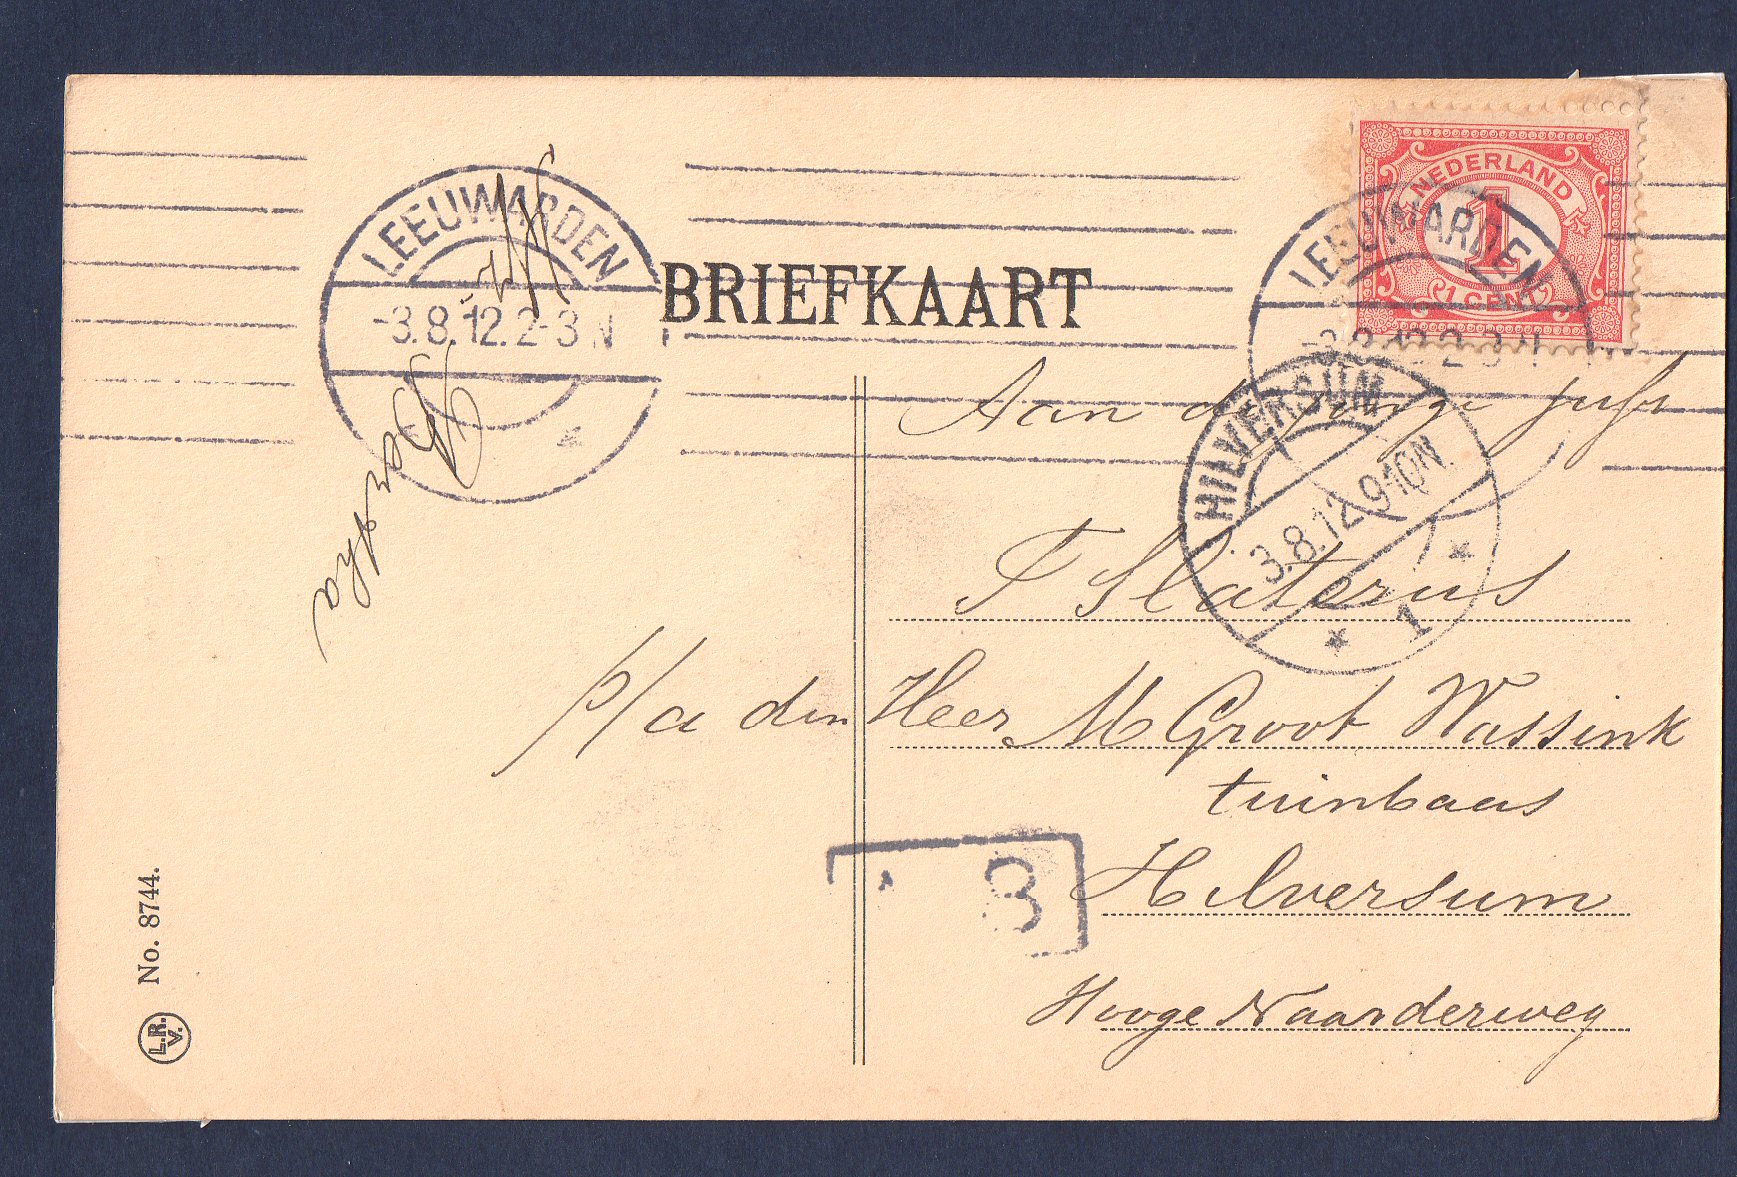 LEEUWARDEN
-3.8.12.2-3N
BRIEFKAART
NEDERLAND
1
1 CENT
LEEUWARDEN
-3.8.12.2-3N
HILVERSUM
3.8.12.9-10N.
1
Bertha
Aan de jonge juffr
F Slaterus
p/a den Heer M Groot Wassink
tuinbaas
Hilversum
Hooge Naarderweg
8
No. 8744.
L.R.
V.